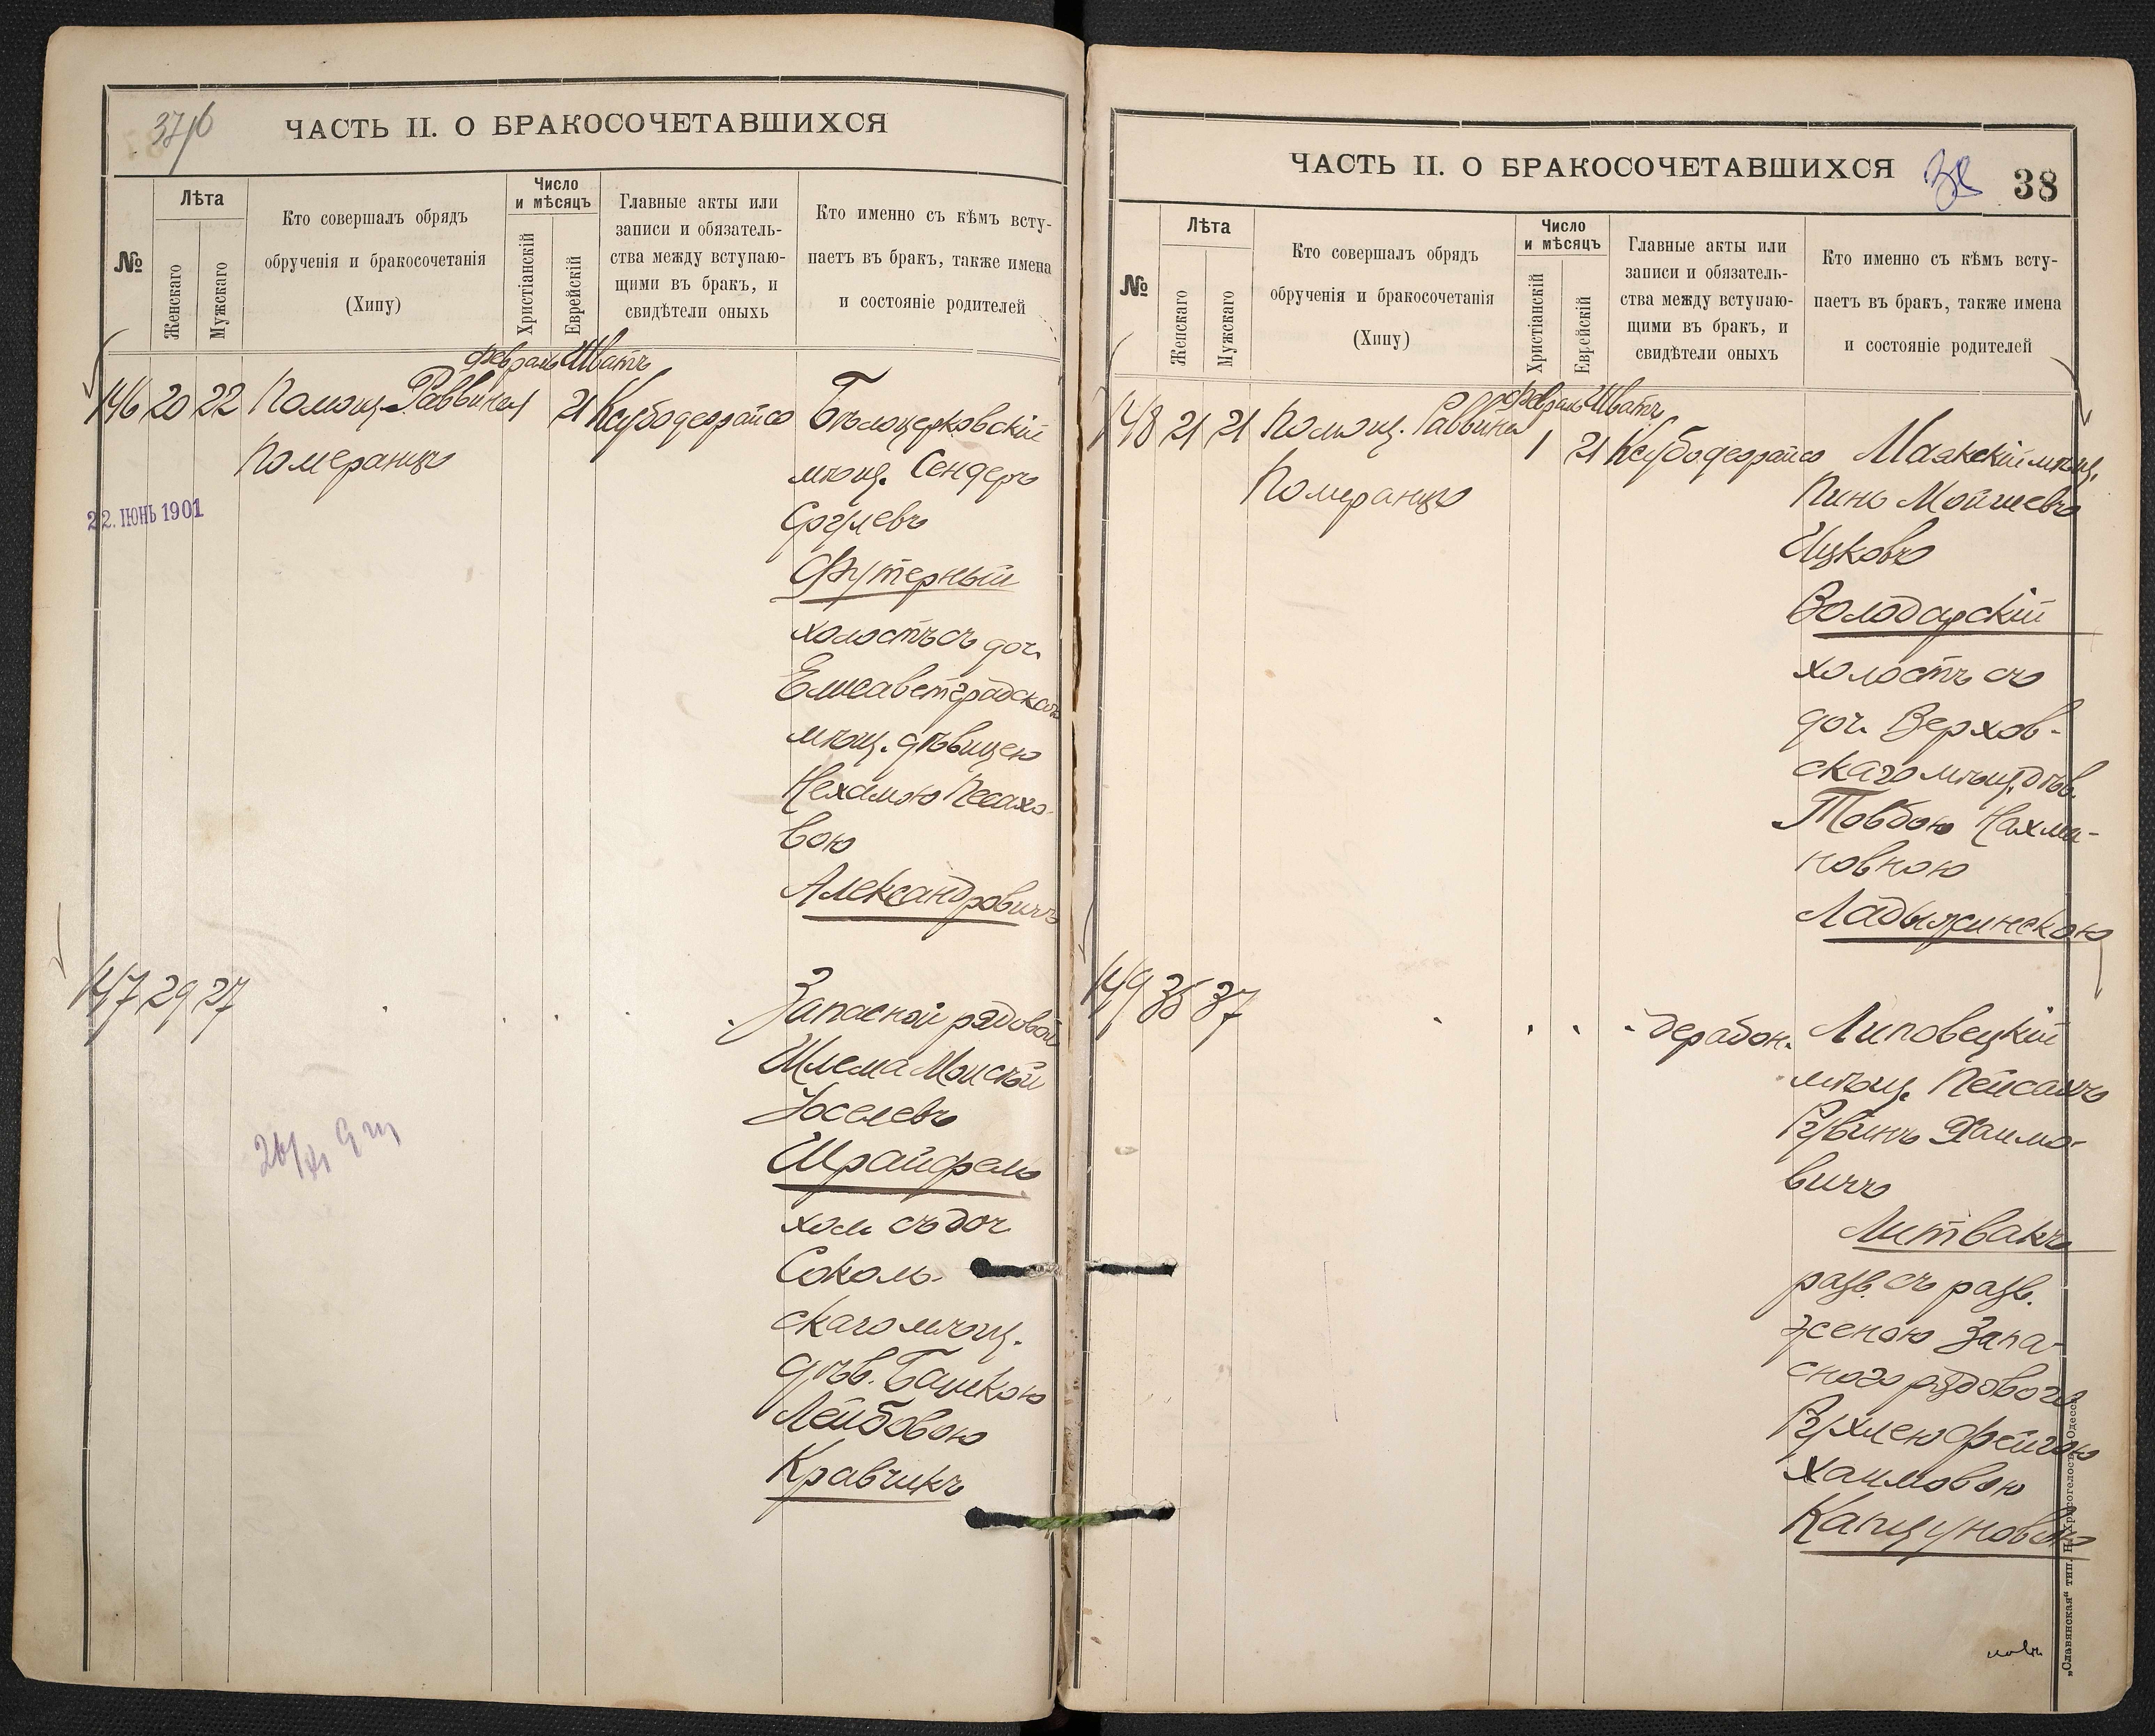 37/б
ЧАСТЬ II. О БРАКОСОЧЕТАВШИХСЯ
№
Лѣта
Женскаго
Мужскаго
Кто совершалъ обрядъ
обрученія и бракосочетанія
(Хипу)
Число
и мѣсяцъ
Христіанскій
Еврейскій
Главные акты или
записи и обязатель-
ства между вступаю-
щими въ бракъ, и
свидѣтели оныхъ
Кто именно съ кѣмъ всту-
паетъ въ бракъ, также имена
и состояніе родителей
февраль Шватъ
146 20 22 Помощ. Раввина 1 21 Ксубодеорайсо Бѣлоцерковскій
Померанцъ
мѣщ. Сендеръ
Срулевъ
22. ІЮНЬ 1901
Футерный
холостъ съ доч.
Елисаветградскаго
мѣщ. дѣвицею
Нехамою Песахо-
вою
Александровичъ
147 29 27 Запасной рядовой
Шлема Мойсей
Іоселевъ
Шрайфель
хол. съ доч
Соколь-
скаго мѣщ.
дѣв. Башкою
Лейбовою
Кравчикъ
ЧАСТЬ II. О БРАКОСОЧЕТАВШИХСЯ
38
38
№
Лѣта
Женскаго
Мужскаго
Кто совершалъ обрядъ
обрученія и бракосочетанія
(Хипу)
Число
и мѣсяцъ
Христіанскій
Еврейскій
Главные акты или
записи и обязатель-
ства между вступаю-
щими въ бракъ, и
свидѣтели оныхъ
Кто именно съ кѣмъ всту-
паетъ въ бракъ, также имена
и состояніе родителей
февраль Шватъ
148 21 21 Помощ. Раввина 1 21 Ксубодеорайсо Маякскій мѣщ.
Померанцъ
Пинь Мойшевъ
Ицковъ
Володарскій
холостъ съ
доч. Верхов-
скаго мѣщ. дѣв.
Товбою Нахма-
новною
Ладыжинскою
149 35 37 дерабон. Липовецкій
мѣщ. Пейсахъ
Рувинъ Хаимо-
вичъ
Литвакъ
разв. съ разв.
женою Запа-
сного рядового
Рухлею Фейгою
Хаимовою
Капцуновою
„Славянская“ тип. Н. Хрисогелосъ, Одесса